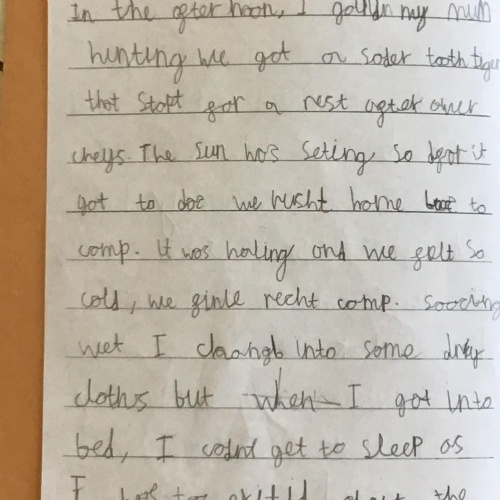 In the after noon, I my mum
hunting we got a sader tooth tiger
that stopt for a rest after ower
cheys. The sun was seting so it
got to we rusht home to
comp. It was haling and we felt so
cold, we finle recht comp. Soocing
wet I into some dry
cloths but when I got into
bed, I codnt get to sleep as
I the